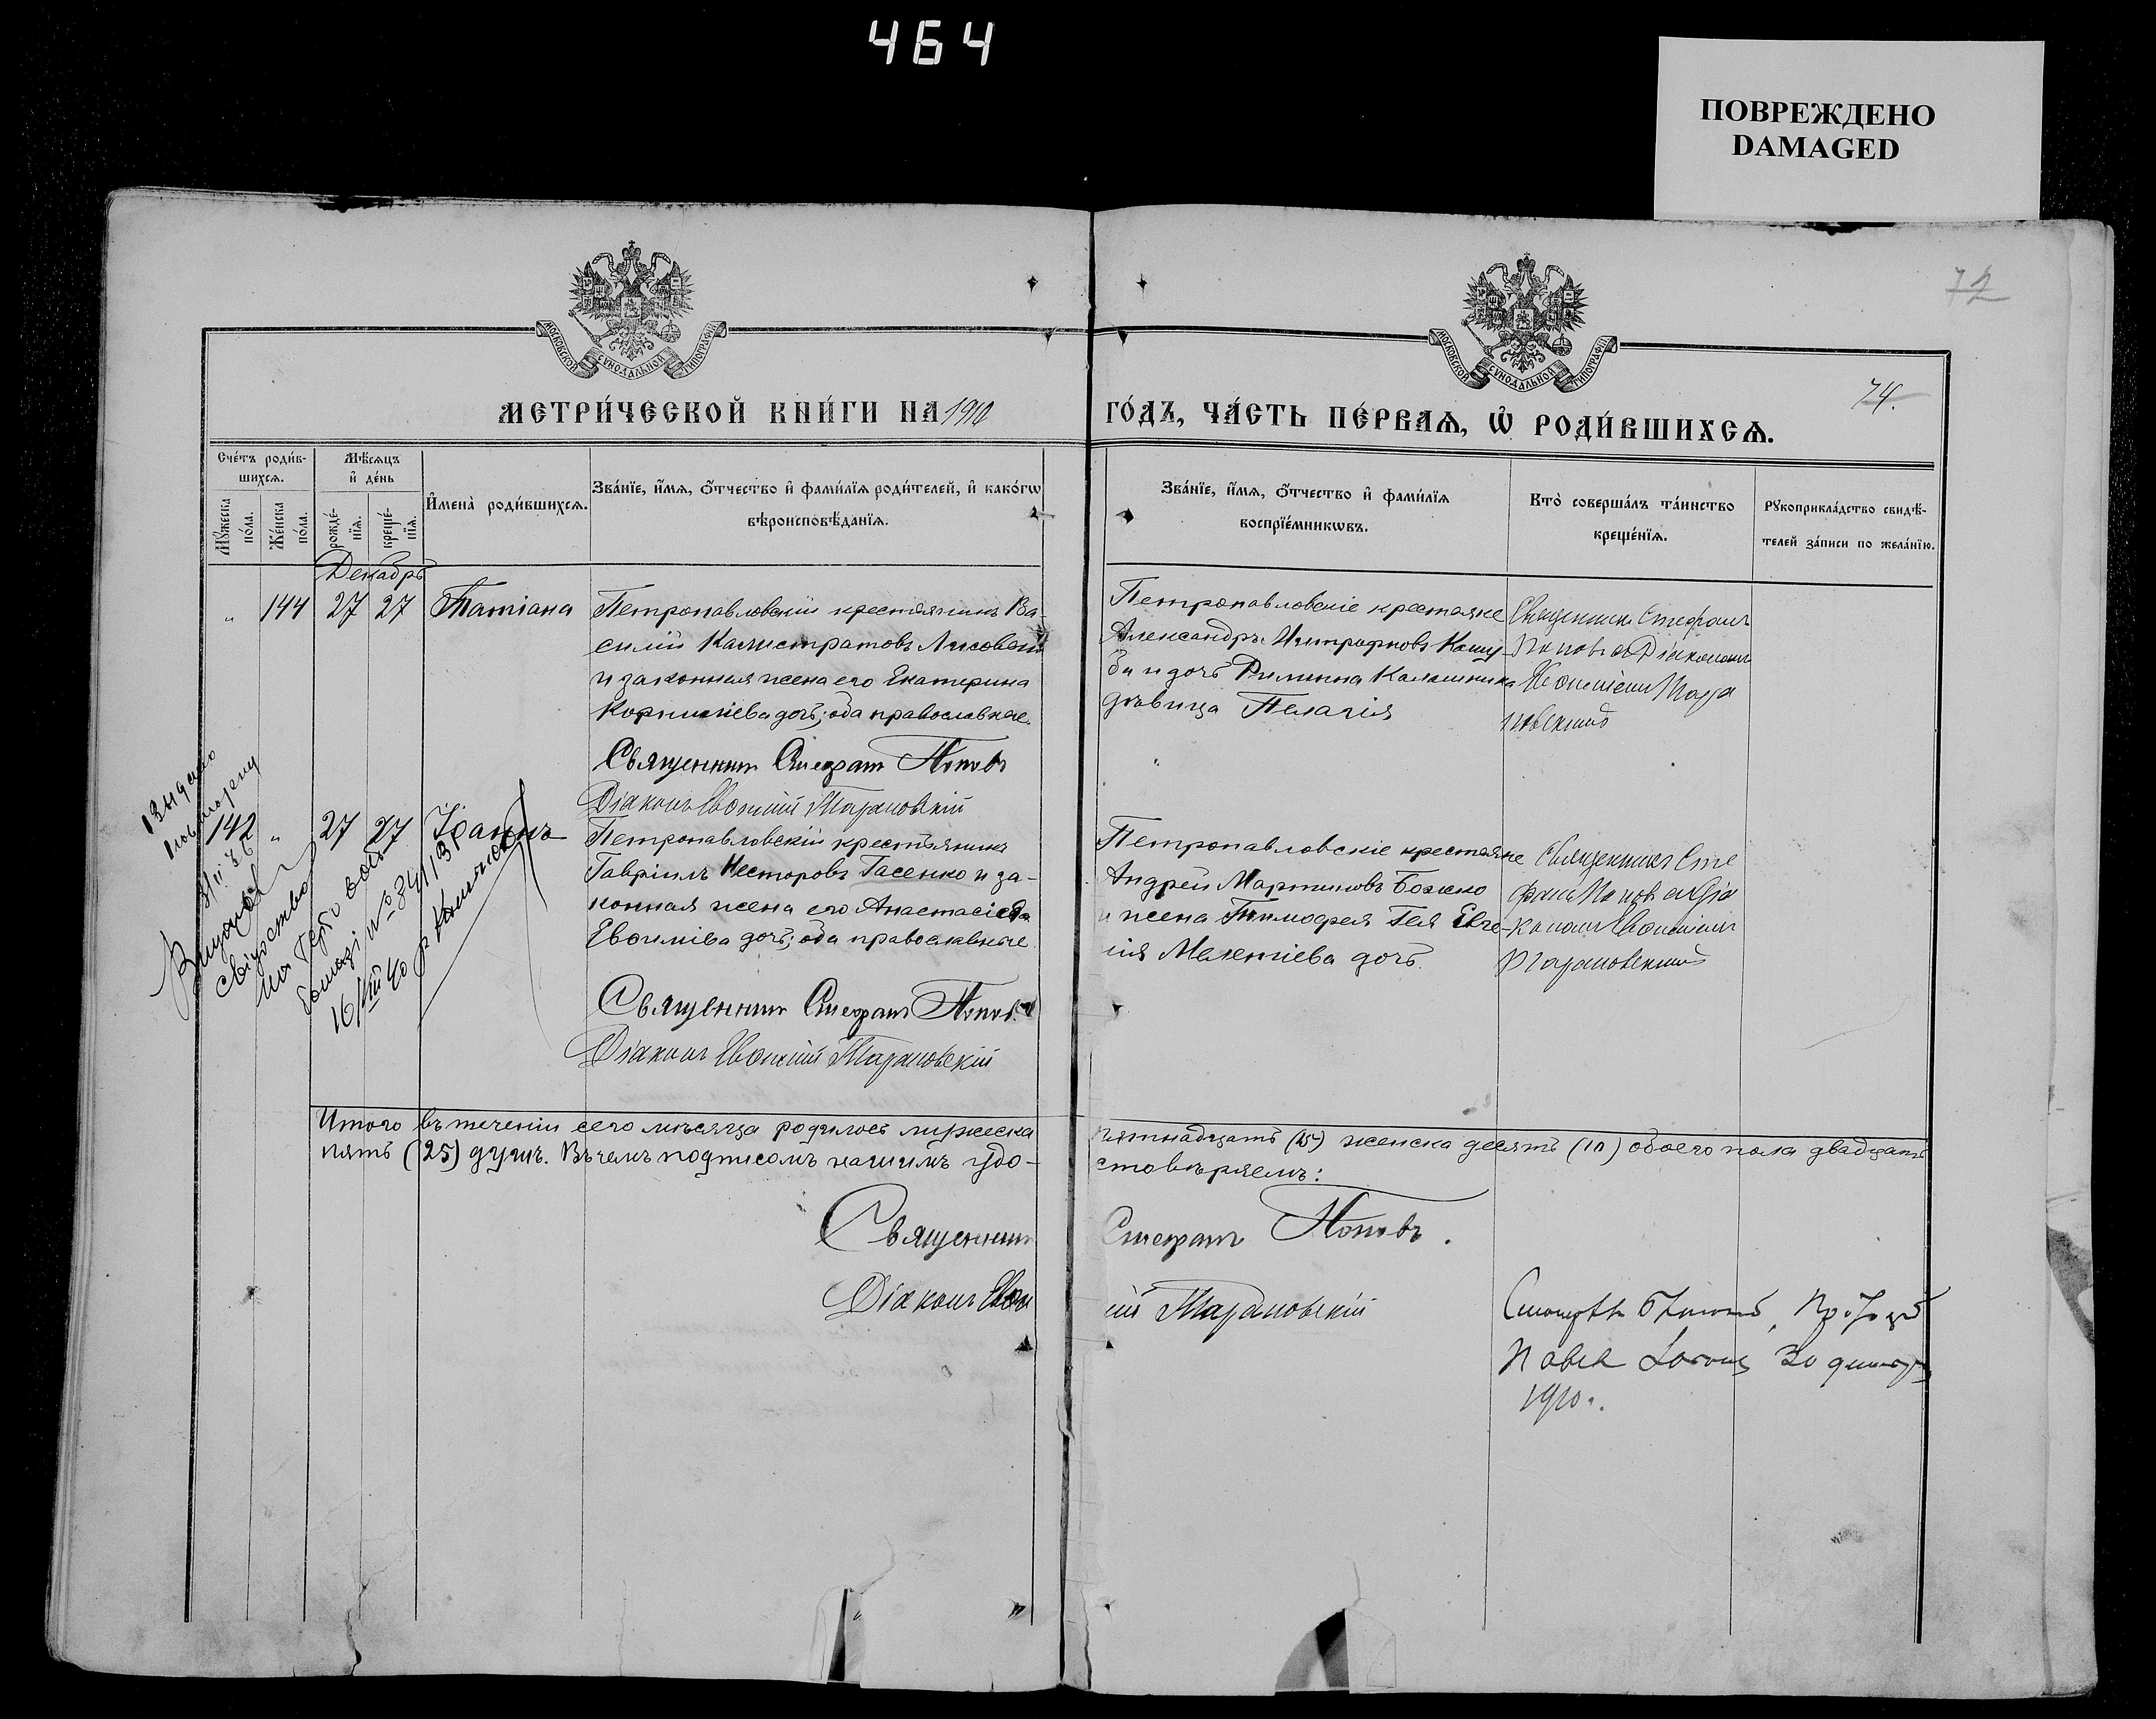 464
ПОВРЕЖДЕНО
DAMAGED
72
74.
МОСКОВСКОЙ СѴНОДАЛЬНОЙ ТИПОГРАФІИ
МОСКОВСКОЙ СѴНОДАЛЬНОЙ ТИПОГРАФІИ
МЕТРИ́ЧЕСКОЙ КНИ́ГИ НА 1910
ГО́ДЪ, ЧА́СТЬ ПЕ́РВАѦ, Ѡ҆ РОДИ́ВШИХСѦ.
Сче́тъ роди́в-
шихсѧ.
Мꙋ́жеска по́ла.
Же́нска по́ла.
Мѣ́сѧцъ
и҆ де́нь
рожде́-
нїѧ.
креще́-
нїѧ.
И҆мена̀ роди́вшихсѧ.
Зва́нїе, и҆́мѧ, ѻ҆́тчество и҆ фами́лїѧ роди́телей, и҆ како́гѡ
вѣроисповѣ́данїѧ.
Зва́нїе, и҆́мѧ, ѻ҆́тчество и҆ фами́лїѧ
воспрїе́мникѡвъ.
Кто̀ соверша́лъ та́инство
креще́нїѧ.
Рꙋкоприкла́дство свидѣ́-
телей за́писи по жела́нїю.
Декабрь
" 144 27 27 Татіана
Петропавловскій крестьянинъ Ва-
силій Калистратовъ Лисовой
и законная жена его Екатерина
Корниліева дочь; оба православные.
Священникъ Стефанъ Поповъ
Діаконъ Евфимій Тарановскій
Петропавловскіе крестьяне
Александръ Митрофановъ Кашу-
ба и дочь Филиппа Калашника
дѣвица Пелагія
Священникъ Стефанъ
Поповъ съ Діакономъ
Евфиміемъ Тара
новскимъ
142 " 27 27 Іоаннъ
Петропавловскій крестьянинъ
Гавріилъ Несторовъ Гасенко и за-
конная жена его Анастасія
Евфиміева дочь; оба православные.
Священникъ Стефанъ Поповъ
Діаконъ Евфимій Тарановскій
Петропавловскіе крестьяне
Андрей Мартиновъ Божко
и жена Тимофея Гея Евге-
нія Мелентіева дочь.
Священникъ Сте
фанъ Поповъ съ Діа
кономъ Евфиміемъ
Тарановскимъ
Видано
повторену
Видано
свідоцтво
на
16/VIII 40 р
Итого въ теченіи сего мѣсяца родилось мужеска
пятнадцать (15) женска десять (10) обоего пола двадцать
пять (25) душъ. Въ чемъ подписомъ нашимъ удо-
стовѣряемъ:
Священникъ Стефанъ Поповъ.
Діаконъ Евфимій Тарановскій
Павелъ
30
1910 г.